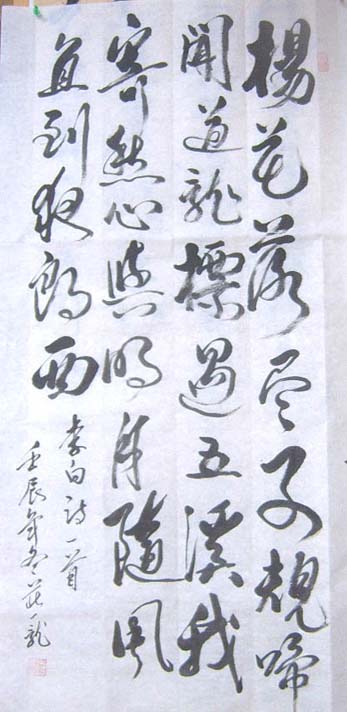 楊花落尽子規啼
聞道龍標過五溪我
寄愁心與明月隨風
直到夜郎西
李白詩一首
壬辰年冬龍